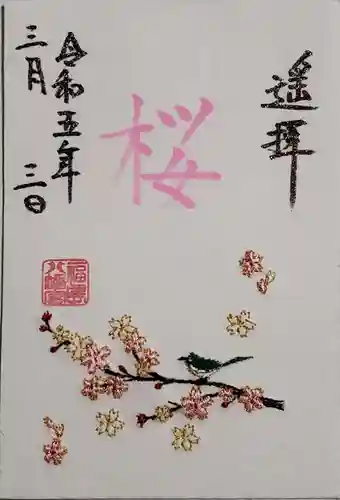 遥拝
桜
令和五年
三月三日